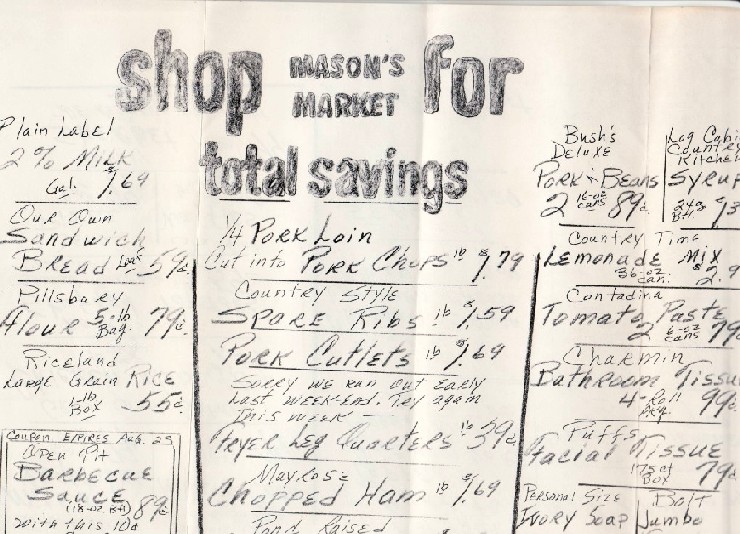 shop MASON'S MARKET for
total savings
Plain Label
2% Milk
Gal. $1.69
Our Own
Sandwich
Bread Loaf 59¢
Pillsbury
Flour 5-lb Bag 79¢
Riceland
Large Grain Rice
1-lb Box 55¢
Coupon Expires Aug. 25
Open Pit
Barbecue
Sauce
(18-oz Btl) 89¢
with this 10¢
1/4 Pork Loin
Cut into Pork Chops lb $1.79
Country Style
Spare Ribs lb $1.59
Pork Cutlets lb $1.69
Sorry we ran out early
last week-end. Try again
this week —
Fryer Leg Quarters lb 39¢
Mayrose
Chopped Ham lb $1.69
Pond Raised
Bush's
Deluxe
Pork & Beans
2 16-oz cans 89¢
Log Cabi
Country
Kitchen
Syrup
24-oz Btl
Country Time
Lemonade Mix
36-oz. can. $2.9
Contadina
Tomato Paste
2 6-oz cans 79¢
Charmin
Bathroom Tissu
4-Roll Pkg. 99¢
Puffs
Facial Tissue
175 ct Box 79¢
Personal Size
Ivory Soap
Bolt
Jumbo